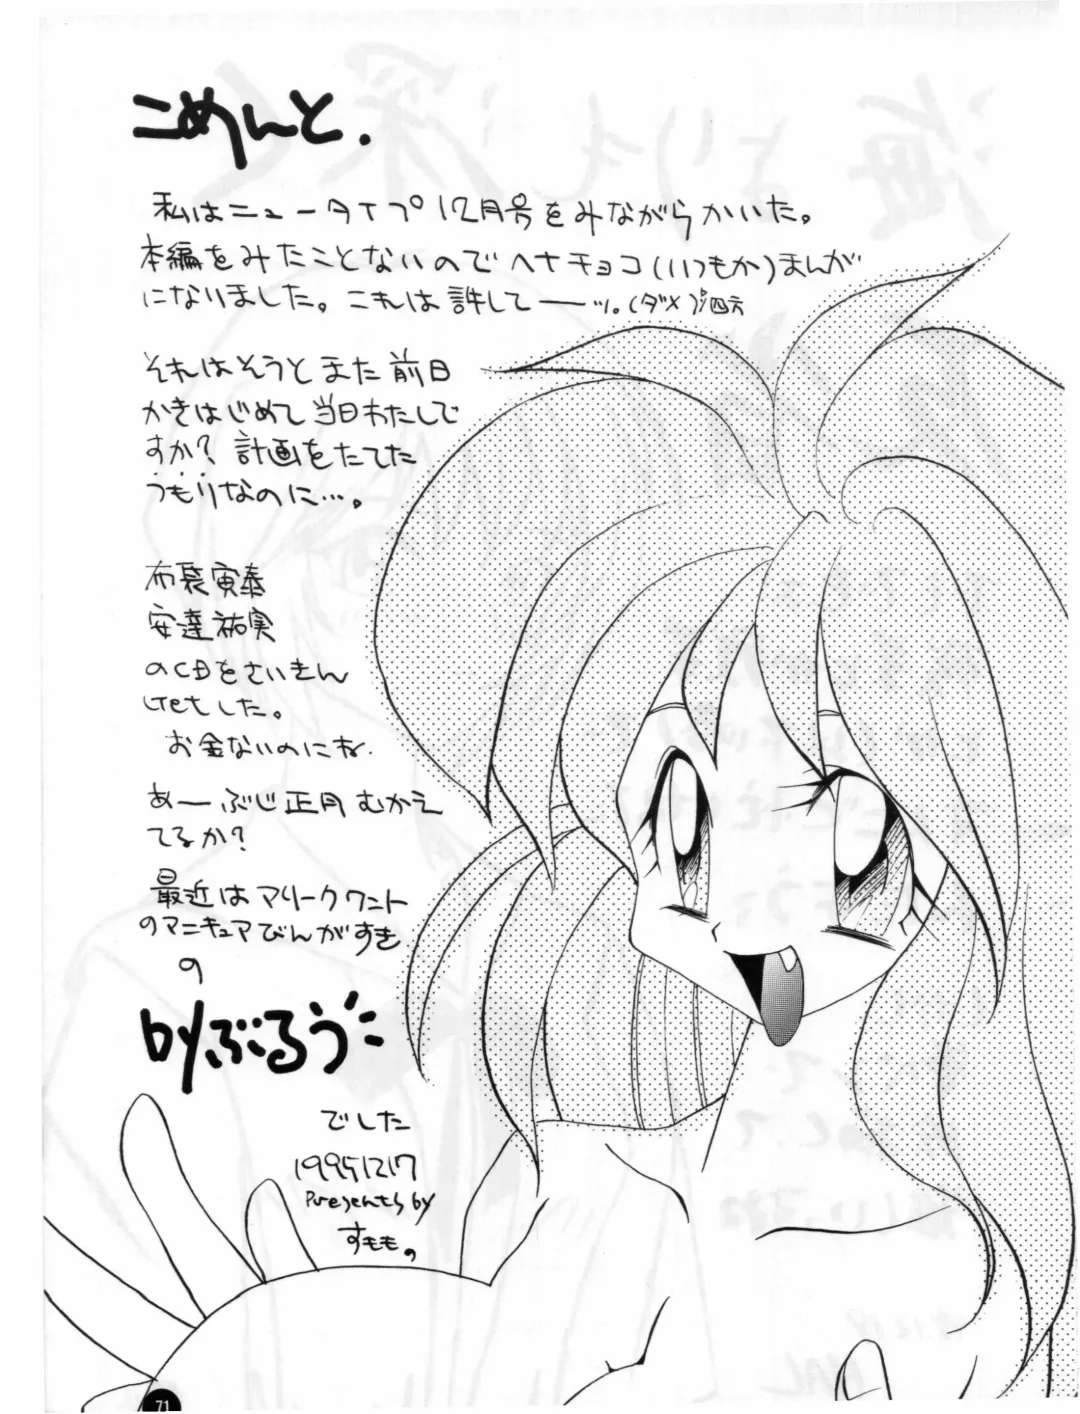 こめんと.
私はニュータイプ12月号をみながらかいた。
本編をみたことないのでヘナチョコ(いつもか)まんが
になりました。これは許して――ッ。(ダメ)
それはそうとまた前日
かきはじめて当日わたしで
すか? 計画をたてた
つもりなのに…。
布袋寅泰
安達祐実
のCDをさいきん
Getした。
お金ないのにね.
あーぶじ正月むかえ
てるか?
最近はマリークワント
のマニキュアびんがすき
の
byぶるう゛
でした
19951217
Presents by
すもも。
71